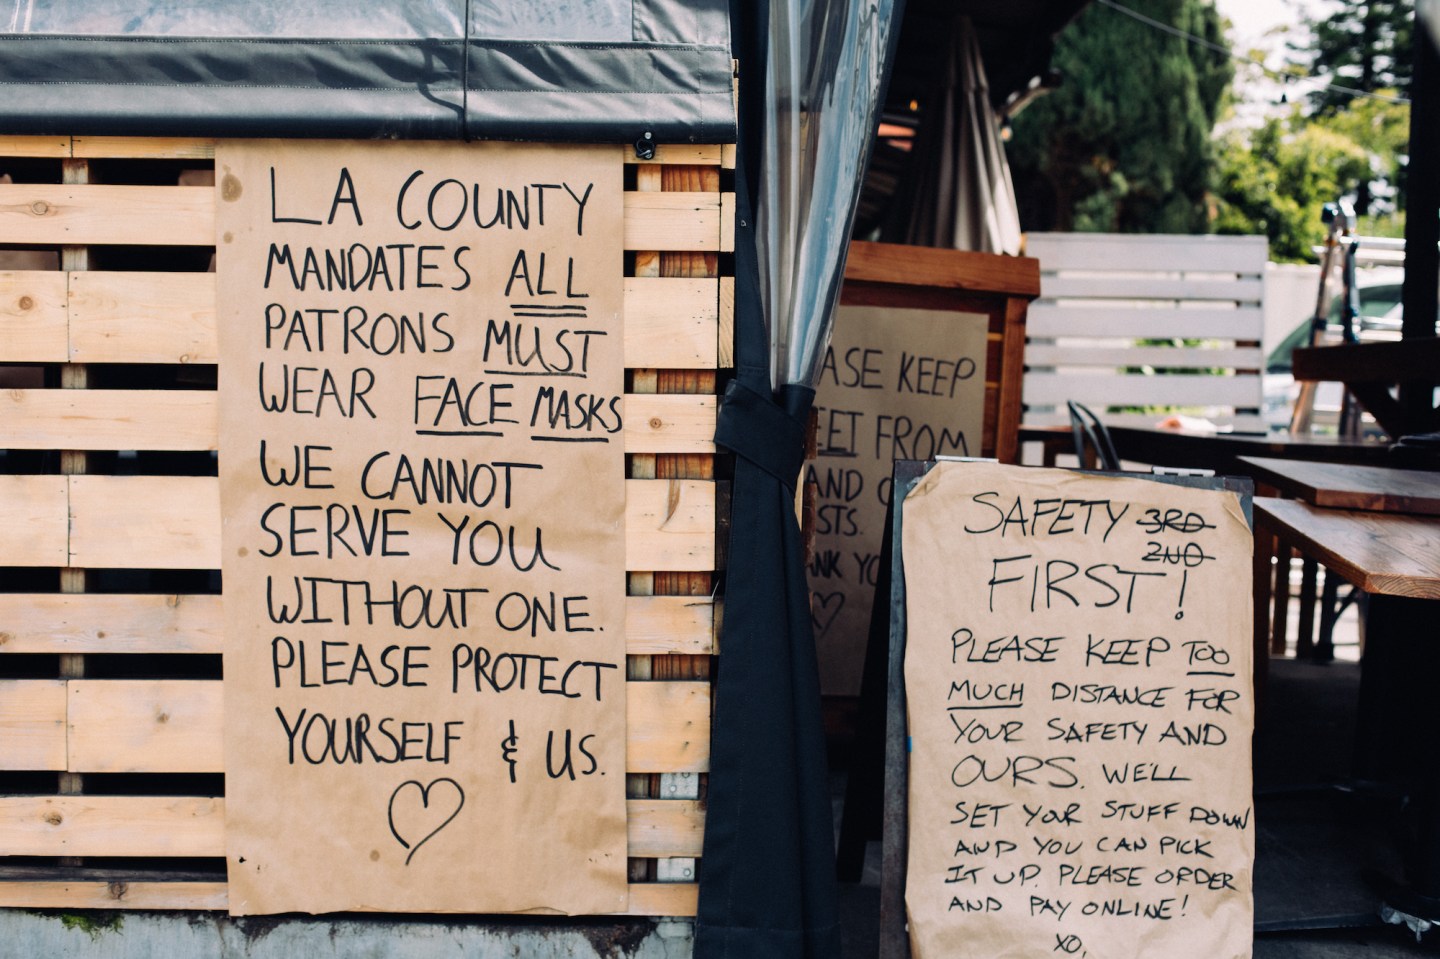 LA COUNTY
MANDATES ALL
PATRONS MUST
WEAR FACE MASKS
WE CANNOT
SERVE YOU
WITHOUT ONE.
PLEASE PROTECT
YOURSELF & US.
KEEP
FROM
AND
SAFETY 3RD
2ND
FIRST!
PLEASE KEEP TOO
MUCH DISTANCE FOR
YOUR SAFETY AND
OURS. WE'LL
SET YOUR STUFF DOWN
AND YOU CAN PICK
IT UP. PLEASE ORDER
AND PAY ONLINE!
XO,